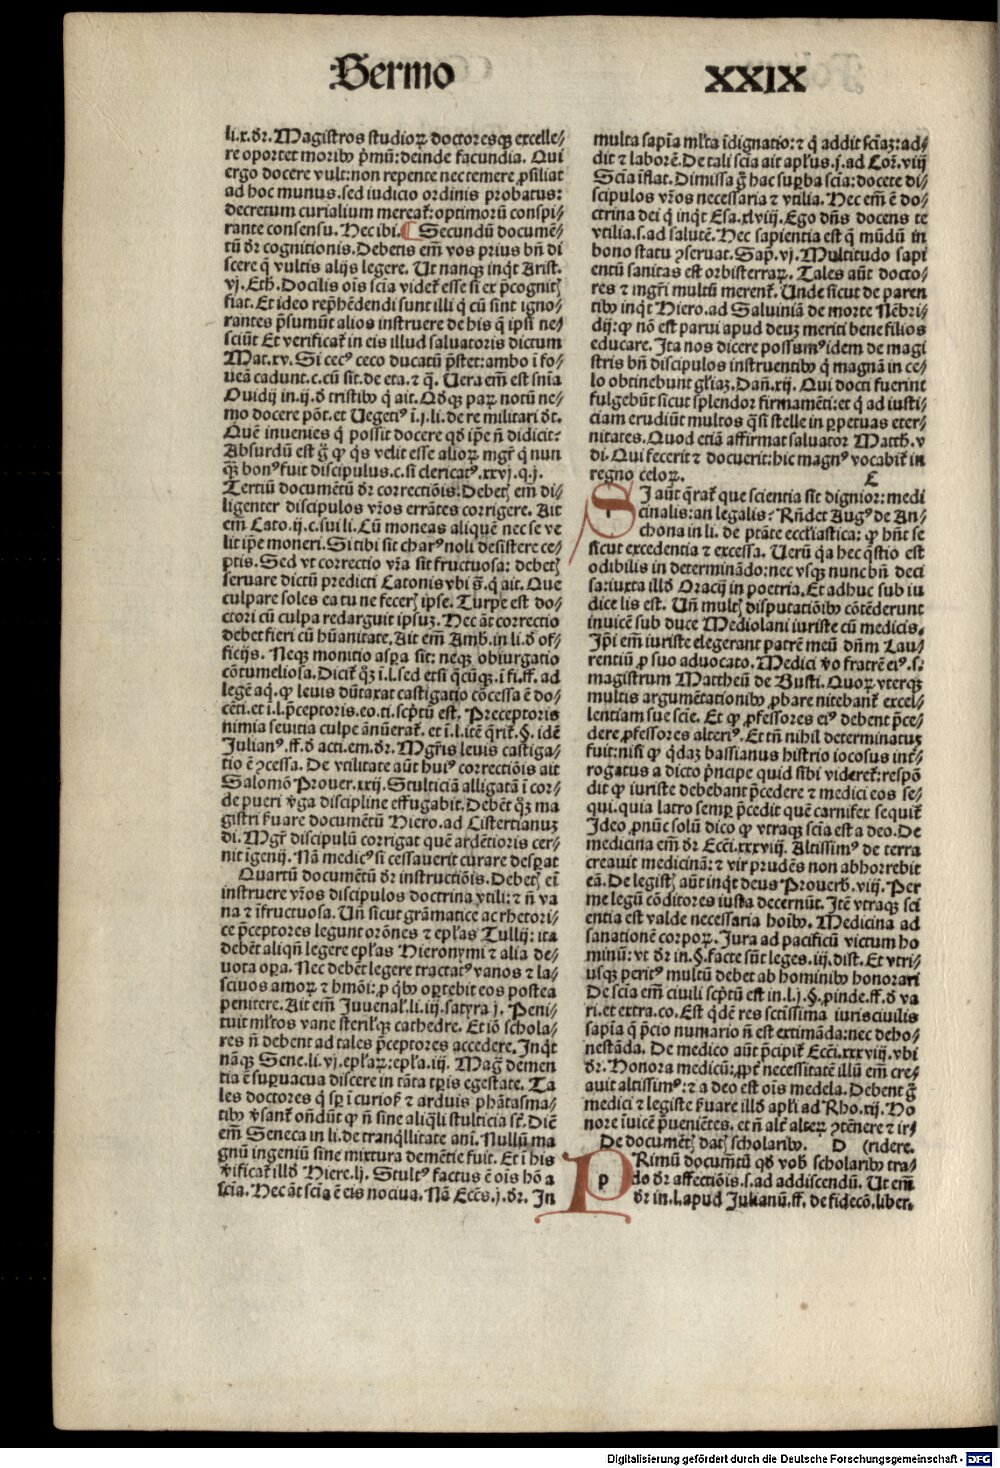 Sermo XXIX
li.x. dr̄. Magistros studioꝝ doctoresqꝫ excelle/
re oportet moribꝰ p̄mū: deinde facundia. Qui
ergo docere vult: non repente nec temere ꝓsiliat
ad hoc munus. sed iudicio ordinis probatus:
decretum curialium mereat̄: optimorū conspi/
rante consensu. Hec ibi. ¶ Secundū documē/
tū dr̄ cognitionis. Debetis em̄ vos prius bn̄ di
scere q̄ vultis alijs legere. Ut nanqꝫ inqt Arist.
vj. Eth. Docilis oīs scīa videt̄ esse si ex p̄cognit
fiat. Et ideo rep̄hēdendi sunt illi q̄ cū sint igno/
rantes p̄sumūt alios instruere de his q̄ ipsi ne/
sciūt Et verificat̄ in eis illud saluatoris dictum
Mat. xv. Si cecꝰ ceco ducatū p̄stet: ambo ī fo/
ueā cadunt. c. cū sit. de eta. ⁊ q̄. Uera em̄ est snīa
Ouidij in.ij. d̄ tristibꝰ q̄ ait. Qd̄qꝫ parꝫ notū ne/
mo docere pōt. et Uegetiꝰ ī.j. li. de re militari dt.
Quē inuenies q̄ possit docere qd̄ ip̄e n̄ didicit?
Absurdū est g̃ ꝙ q̄s velit esse alioꝝ mgr̄ q̄ nun
qꝫ bonꝰ fuit discipulus. c. si clericatꝰ. xvj. q. j.
Tertiū documētū dr̄ correctiōis. Debet em̄ di/
ligenter discipulos vr̄os errātes corrigere. Ait
em̄ Cato.ij. c. sui li. Cū moneas aliquē nec se ve
lit ip̄e moneri. Si tibi sit charꝰ noli desistere ce/
ptis. Sed vt correctio vr̄a sit fructuosa: debet
seruare dictū predicti Catonis vbi g̃. q̄ ait. Que
culpare soles ea tu ne fecer ipse. Turpe est do/
ctori cū culpa redarguit ipsuꝫ. Hec āt correctio
debet fieri cū hūanitate. Ait em̄ Amb. in li. d̄ of/
ficijs. Neqꝫ monitio aspa sit: neqꝫ obiurgatio
cōtumeliosa. Dicit̄ qꝫ ī.l. sed etsi q̄cūqꝫ. ī fi. ff. ad
legē aq̄. ꝙ leuis dūtaxat castigatio cōcessa ē do/
cēti. et ī.l. p̄ceptoris. eo. ti. scp̄tū est. Preceptoris
nimia seuitia culpe ānūerat̄. et ī.l. itē q̄rit̄. §. idē
Julianꝰ. ff. d̄ acti. em. dr̄. Mgr̄is leuis castiga/
tio ē ꝯcessa. De vtilitate aūt huiꝰ correctiōis ait
Salomō Prouer. xxij. Stulticiā alligatā ī cor/
de pueri v̄ga discipline effugabit. Debēt qꝫ ma
gistri ẜuare documētū Hiero. ad Cistertianuꝫ
di. Mgr̄ discipulū corrigat quē ardētioris cer/
nit īgenij. Nā medicꝰ si cessauerit curare desꝑat
Quartū documētū dr̄ instructiōis. Debet eī
instruere vr̄os discipulos doctrina vtili: ⁊ n̄ va
na ⁊ īfructuosa. Un̄ sicut grāmatice ac rhetori/
ce p̄ceptores legunt orōnes ⁊ epl̄as Tullij: ita
debēt aliqn̄ legere epl̄as Hieronymi ⁊ alia de/
uota oꝑa. Nec debēt legere tractatꝰ vanos ⁊ la/
sciuos amoꝝ ⁊ hmōi: ꝓ q̄bꝰ oꝑtebit eos postea
penitere. Ait em̄ Juuenal̄. li. iij. satyra j. Peni/
tuit ml̄tos vane sterilꝫqꝫ cathedre. Et iō schola/
res n̄ debent ad tales p̄ceptores accedere. Inqt
nāqꝫ Sene. li. vj. epl̄aꝝ: epl̄a. iij. Mag̃ demen
tia ē suꝑuacua discere in tāta tꝑis egestate. Ta
les doctores q̄ sꝑ ī curiosꝭ ⁊ arduis phātasma/
tibꝰ v̄sant̄ on̄dūt ꝙ n̄ sine aliq̄li stulticia sꝫt. Diē
em̄ Seneca in li. de tranq̄llitate anī. Nullū ma
gnū ingeniū sine mixtura demētie fuit. Et ī his
v̄ificat̄ illd̄ Hiere. lj. Stultꝰ factus ē oīs hō a
scīa. Hec āt scīa ē eis nociua. Nā Ecc̄s. j. dr̄. In
multa sapīa ml̄ta īdignatio: ⁊ q̄ addit scīaꝫ: ad/
dit ⁊ laborē. De tali scīa ait apl̄us. j. ad Cor̄. viij
Scīa īflat. Dimissa g̃ hac suꝑba scīa: docete di/
scipulos vr̄os necessaria ⁊ vtilia. Hec em̄ ē do/
ctrina dei q̄ inqt Esa. xlviij. Ego dn̄s docens te
vtilia. s. ad salutē. Hec sapientia est q̄ mūdū in
bono statu ꝯseruat. Sap̄. vj. Multitudo sapi
entū sanitas est orbisterraꝝ. Tales aūt docto/
res ⁊ mgr̄i multū merent̄. Unde sicut de paren
tibꝰ inqt Hiero. ad Saluiniā de morte Nebri/
dij: ꝙ nō est parui apud deuꝫ meriti bene filios
educare. Ita nos dicere possumꝰ idem de magi
stris bn̄ discipulos instruentibꝰ q̄ magnā in ce/
lo obtinebunt gl̄iaꝫ. Dan̄. xij. Qui docti fuerint
fulgebūt sicut splendor firmamēti: et q̄ ad iusti/
ciam erudiūt multos q̄si stelle in ꝑpetuas eter/
nitates. Quod etiā affirmat saluator Matth. v
di. Qui fecerit ⁊ docuerit: hic magnꝰ vocabit̄ in
regno celoꝝ. C
SI aūt q̄rat̄ que scientia sit dignior: medi
cinalis: an legalis? Rn̄det Augꝰ de An/
chona in li. de ptāte eccl̄iastica: ꝙ hn̄t se
sicut excedentia ⁊ excessa. Uerū q̄a hec q̄stio est
odibilis in determinādo: nec vsqꝫ nunc bn̄ deci
sa: iuxta illd̄ Oracij in poetria. Et adhuc sub iu
dice lis est. Un̄ mult disputatiōibꝰ cōtēderunt
inuicē sub duce Mediolani iuriste cū medicis.
Ip̄i em̄ iuriste elegerant patrē meū dn̄m Lau/
rentiū ꝓ suo aduocato. Medici v̄o fratrē eiꝰ. s.
magistrum Mattheū de Busti. Quoꝝ vterqꝫ
multis argumētationibꝰ ꝓbare nitebant̄ excel/
lentiam sue scīe. Et ꝙ ꝓfessores eiꝰ debent p̄ce/
dere ꝓfessores alteriꝰ. Et tn̄ nihil determinatuꝫ
fuit: nisi ꝙ q̄daꝫ bassianus histrio iocosus int̄/
rogatus a dicto p̄ncipe quid sibi videret̄: respō
dit ꝙ iuriste debebant p̄cedere ⁊ medici eos se/
qui. quia latro semꝑ p̄cedit quē carnifex sequit̄
Ideo ꝓnūc solū dico ꝙ vtraqꝫ scīa est a deo. De
medicina em̄ dr̄ Ecc̄i. xxxviij. Altissimꝰ de terra
creauit medicinā: ⁊ vir prudēs non abhorrebit
eā. De legist aūt inqt deus Prouerb̄. viij. Per
me legū cōditores iusta decernūt. Itē vtraqꝫ sci
entia est valde necessaria hoībꝰ. Medicina ad
sanationē corpoꝝ. Jura ad pacificū victum ho
minū: vt dr̄ in. §. facte sūt leges. iij. dist. Et vtri/
usqꝫ peritꝰ multū debet ab hominibꝰ honorari
De scīa em̄ ciuili scp̄tū est in. l. j. §. ꝓinde. ff. d̄ va
ri. et extra. co. Est q̄dē res sctissima iurisciuilis
sapīa q̄ p̄cio numario n̄ est extimāda: nec deho/
nestāda. De medico aūt p̄cipit̄ Ecc̄i. xxxviij. vbi
dr̄. Honora medicū: ꝓpt̄ necessitatē illū em̄ cre/
auit altissimꝰ: ⁊ a deo est oīs medela. Debent g̃
medici ⁊ legiste ẜuare illd̄ apl̄i ad Rho. xij. Ho
nore īuicē p̄ueniētes. et n̄ alt̄ alteꝝ ꝯtēnere ⁊ ir/
De documēt dat scholaribꝰ. D (ridere.
PRimū documētū qd̄ vob̄ scholaribꝰ tra/
do dr̄ affectiōis. s. ad addiscendū. Ut em̄
dr̄ in. l. apud Julianū. ff. de fidecō. liber.
Digitalisierung gefördert durch die Deutsche Forschungsgemeinschaft - DFG